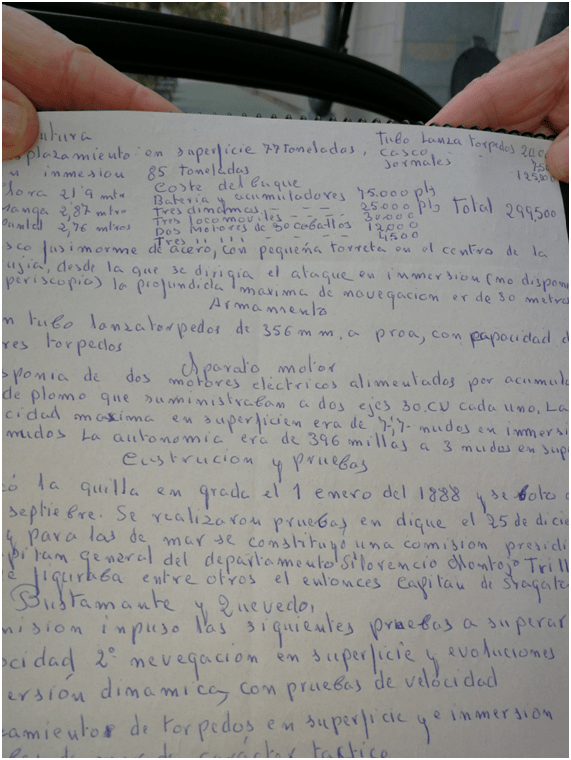 ntura
splazamiento en superficie 77 Toneladas, Tubo Lanza torpedos
n inmesion 85 Toneladas casco
slora 21'9 mtr Coste del buque Jornales
manga 2,87 mtro Bateria y acumuladores 75.000 pts
puntal 2,76 mtros Tres dinamos - - - 25.000 pts Total 299500
Tres locomoviles - - - 30.000
Dos Motores de 30 caballos 12000
Tres 11 111 - - - 4500
sco fusimorme de acero, con pequeña torreta en el centro de la
ujia, desde la que se dirigia el ataque en inmersion (no dispon
periscopio) la profundida maxima de navegacion er de 30 metros
Armamento
n tubo lanzatorpedos de 356 mm, a proa, con capacidad d
res torpedos
Aparato motor
sponia de dos motores electricos alimentados por acumula
de plomo que suministraban a dos ejes 30.CV cada uno. La
cidad maxima en superficien era de 7,7 nudos en inmersi
nudos La autonomia era de 396 millas a 3 nudos en sup
custrucion y pruebas
có la quilla en grada el 1 enero del 1888 y se boto
septiebre. Se realizaron pruebas en dique el 25 de dicie
y para las de mar se constituyo una comision presidi
pitam general del departamento Florencio Montojo Trill
e figuraba entre otros el entonces Capitan de fragate
Bustamante y Quevedo,
mision inpuso las siguientes pruebas a superar
ocidad 2º nevegacion en superficie y evoluciones
ersión dinamica, con pruebas de velocidad
zamientos de torpedos en superficie y e inmersion
de carácter tactico